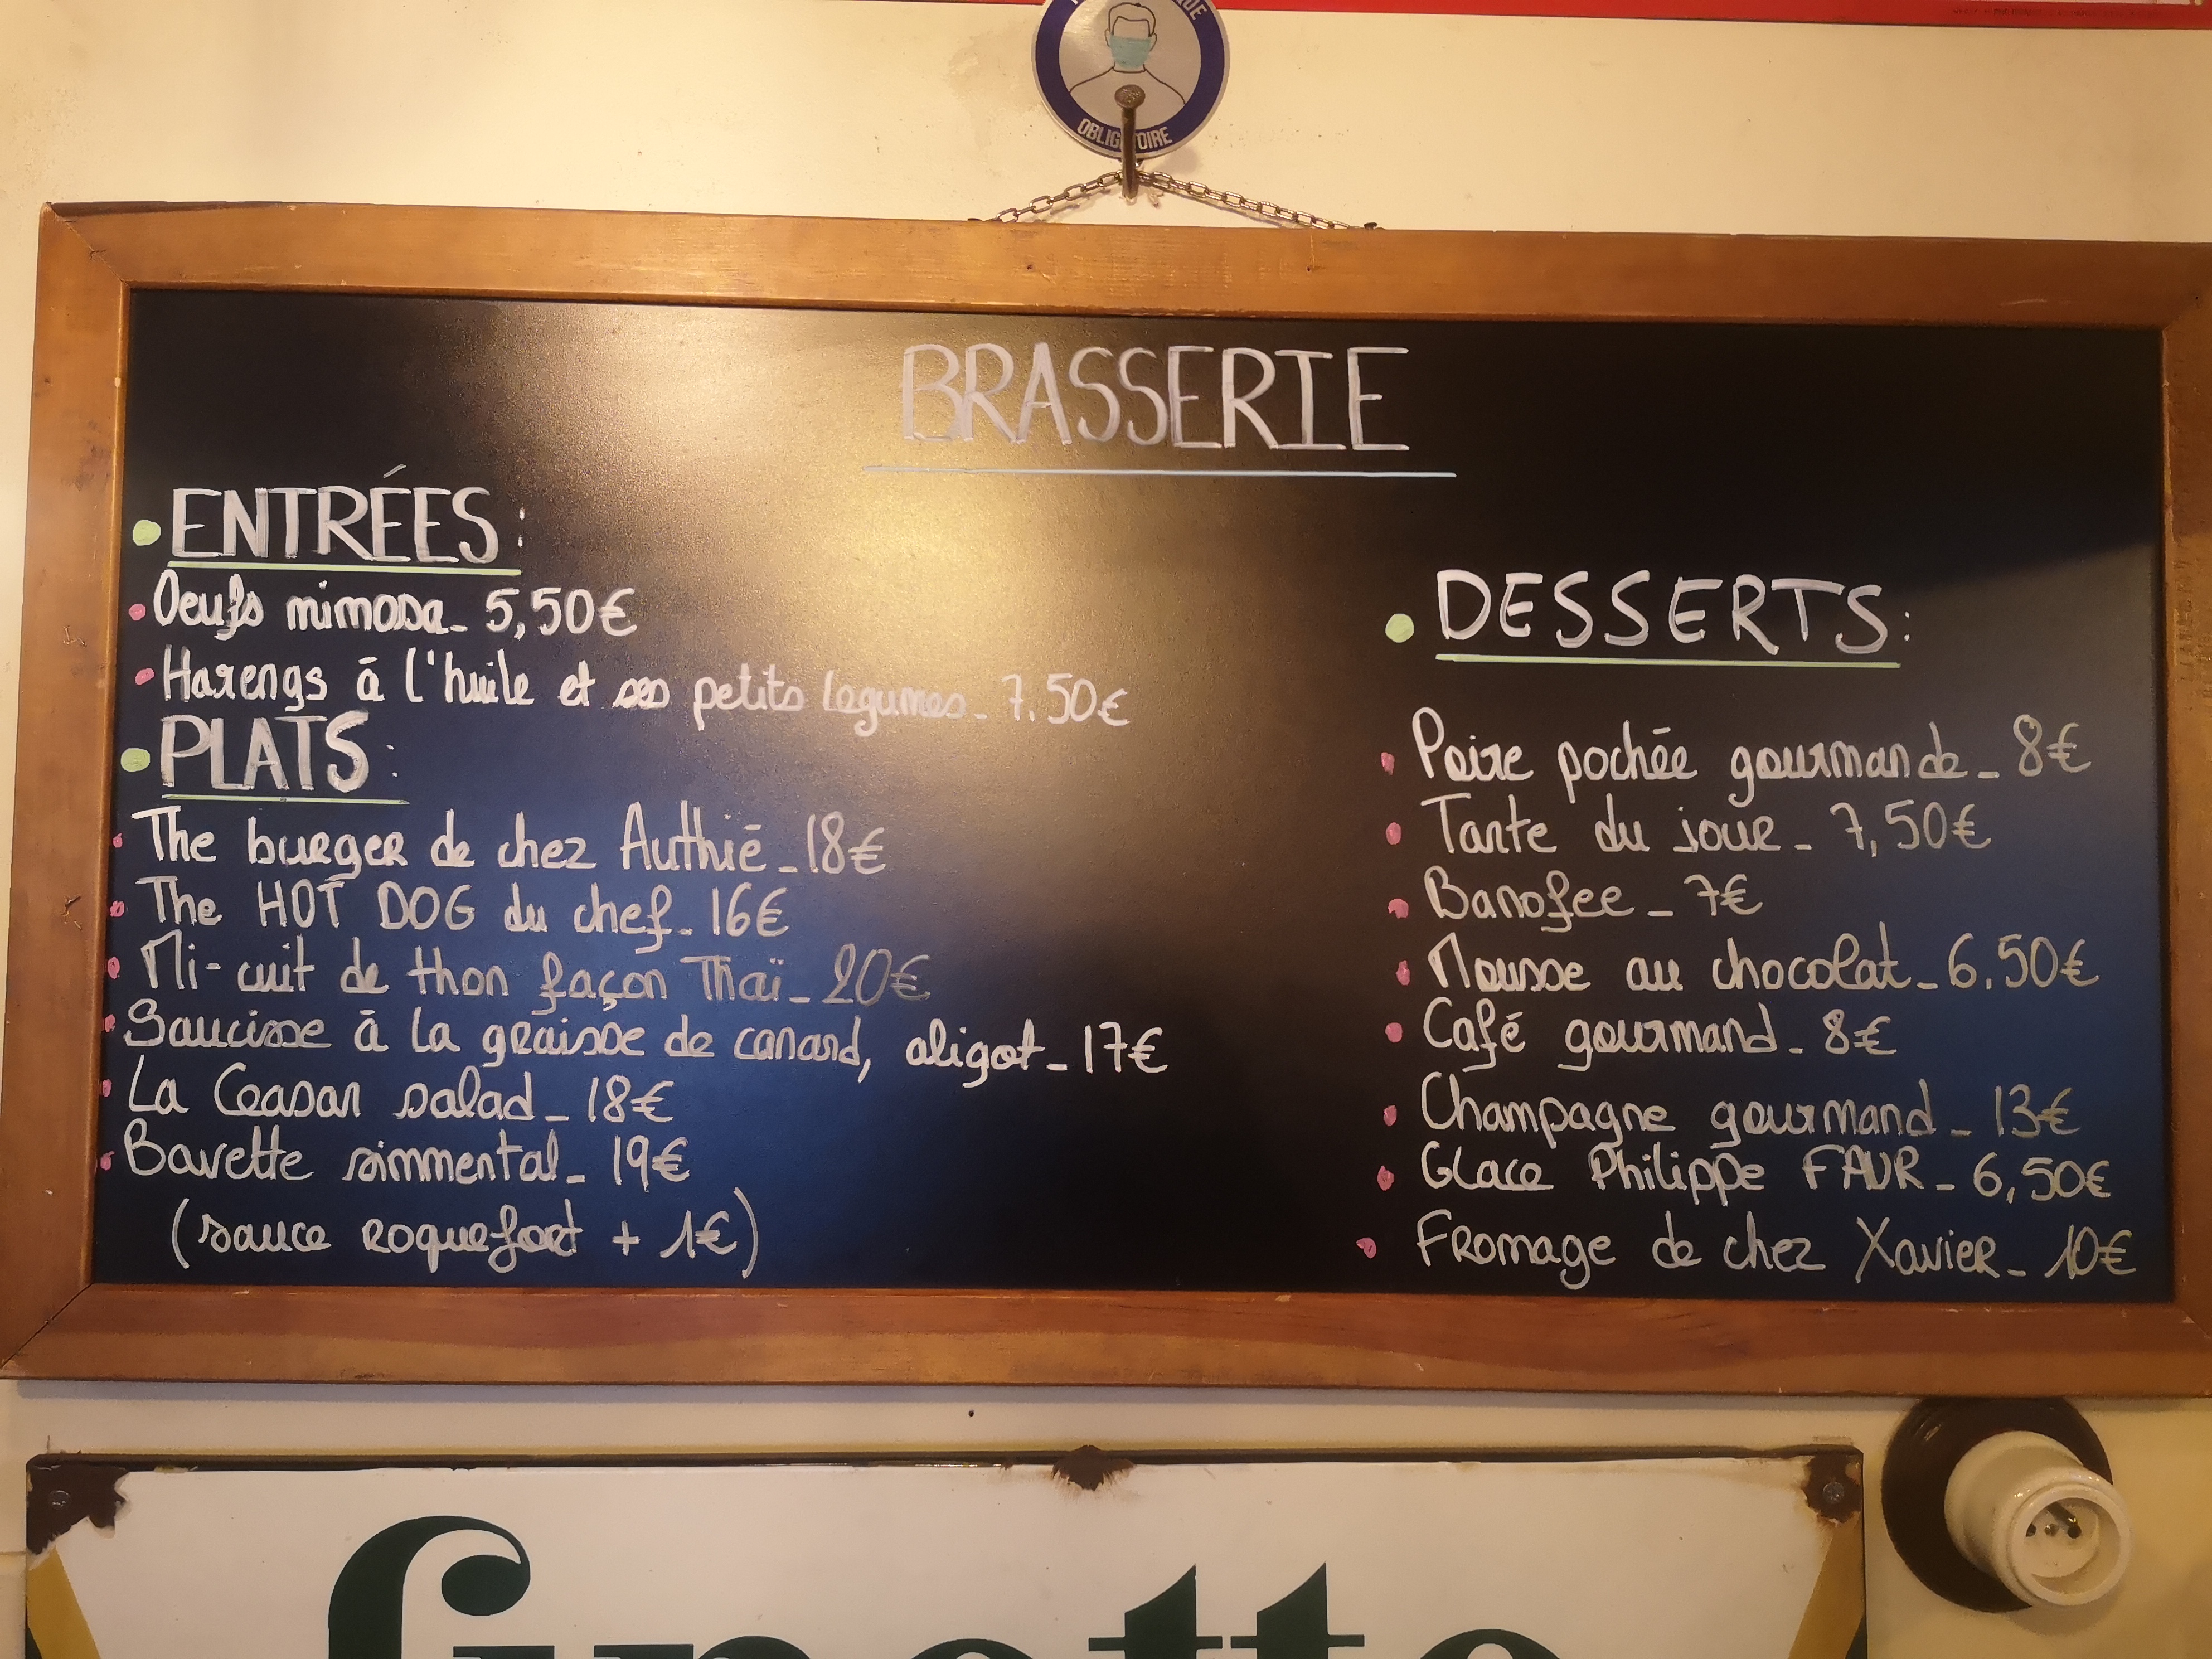 OBLIGATOIRE
BRASSERIE
ENTRÉES:
Oeufs mimosa_ 5,50€
Harengs à l'huile et ses petits legumes_ 7.50€
PLATS:
The burger de chez Authié_18€
The HOT DOG du chef_16€
Mi-cuit de thon façon Thaï_20€
Saucisse à la graisse de canard, aligot_17€
La Ceasar salad_18€
Bavette simmental_ 19€
(sauce roquefort + 1€)
DESSERTS:
Poire pochée gourmande_8€
Tarte du jour_ 7,50€
Banofee_7€
Mousse au chocolat_6.50€
Café gourmand_8€
Champagne gourmand_13€
Glace Philippe FAUR_6,50€
Fromage de chez Xavier_10€